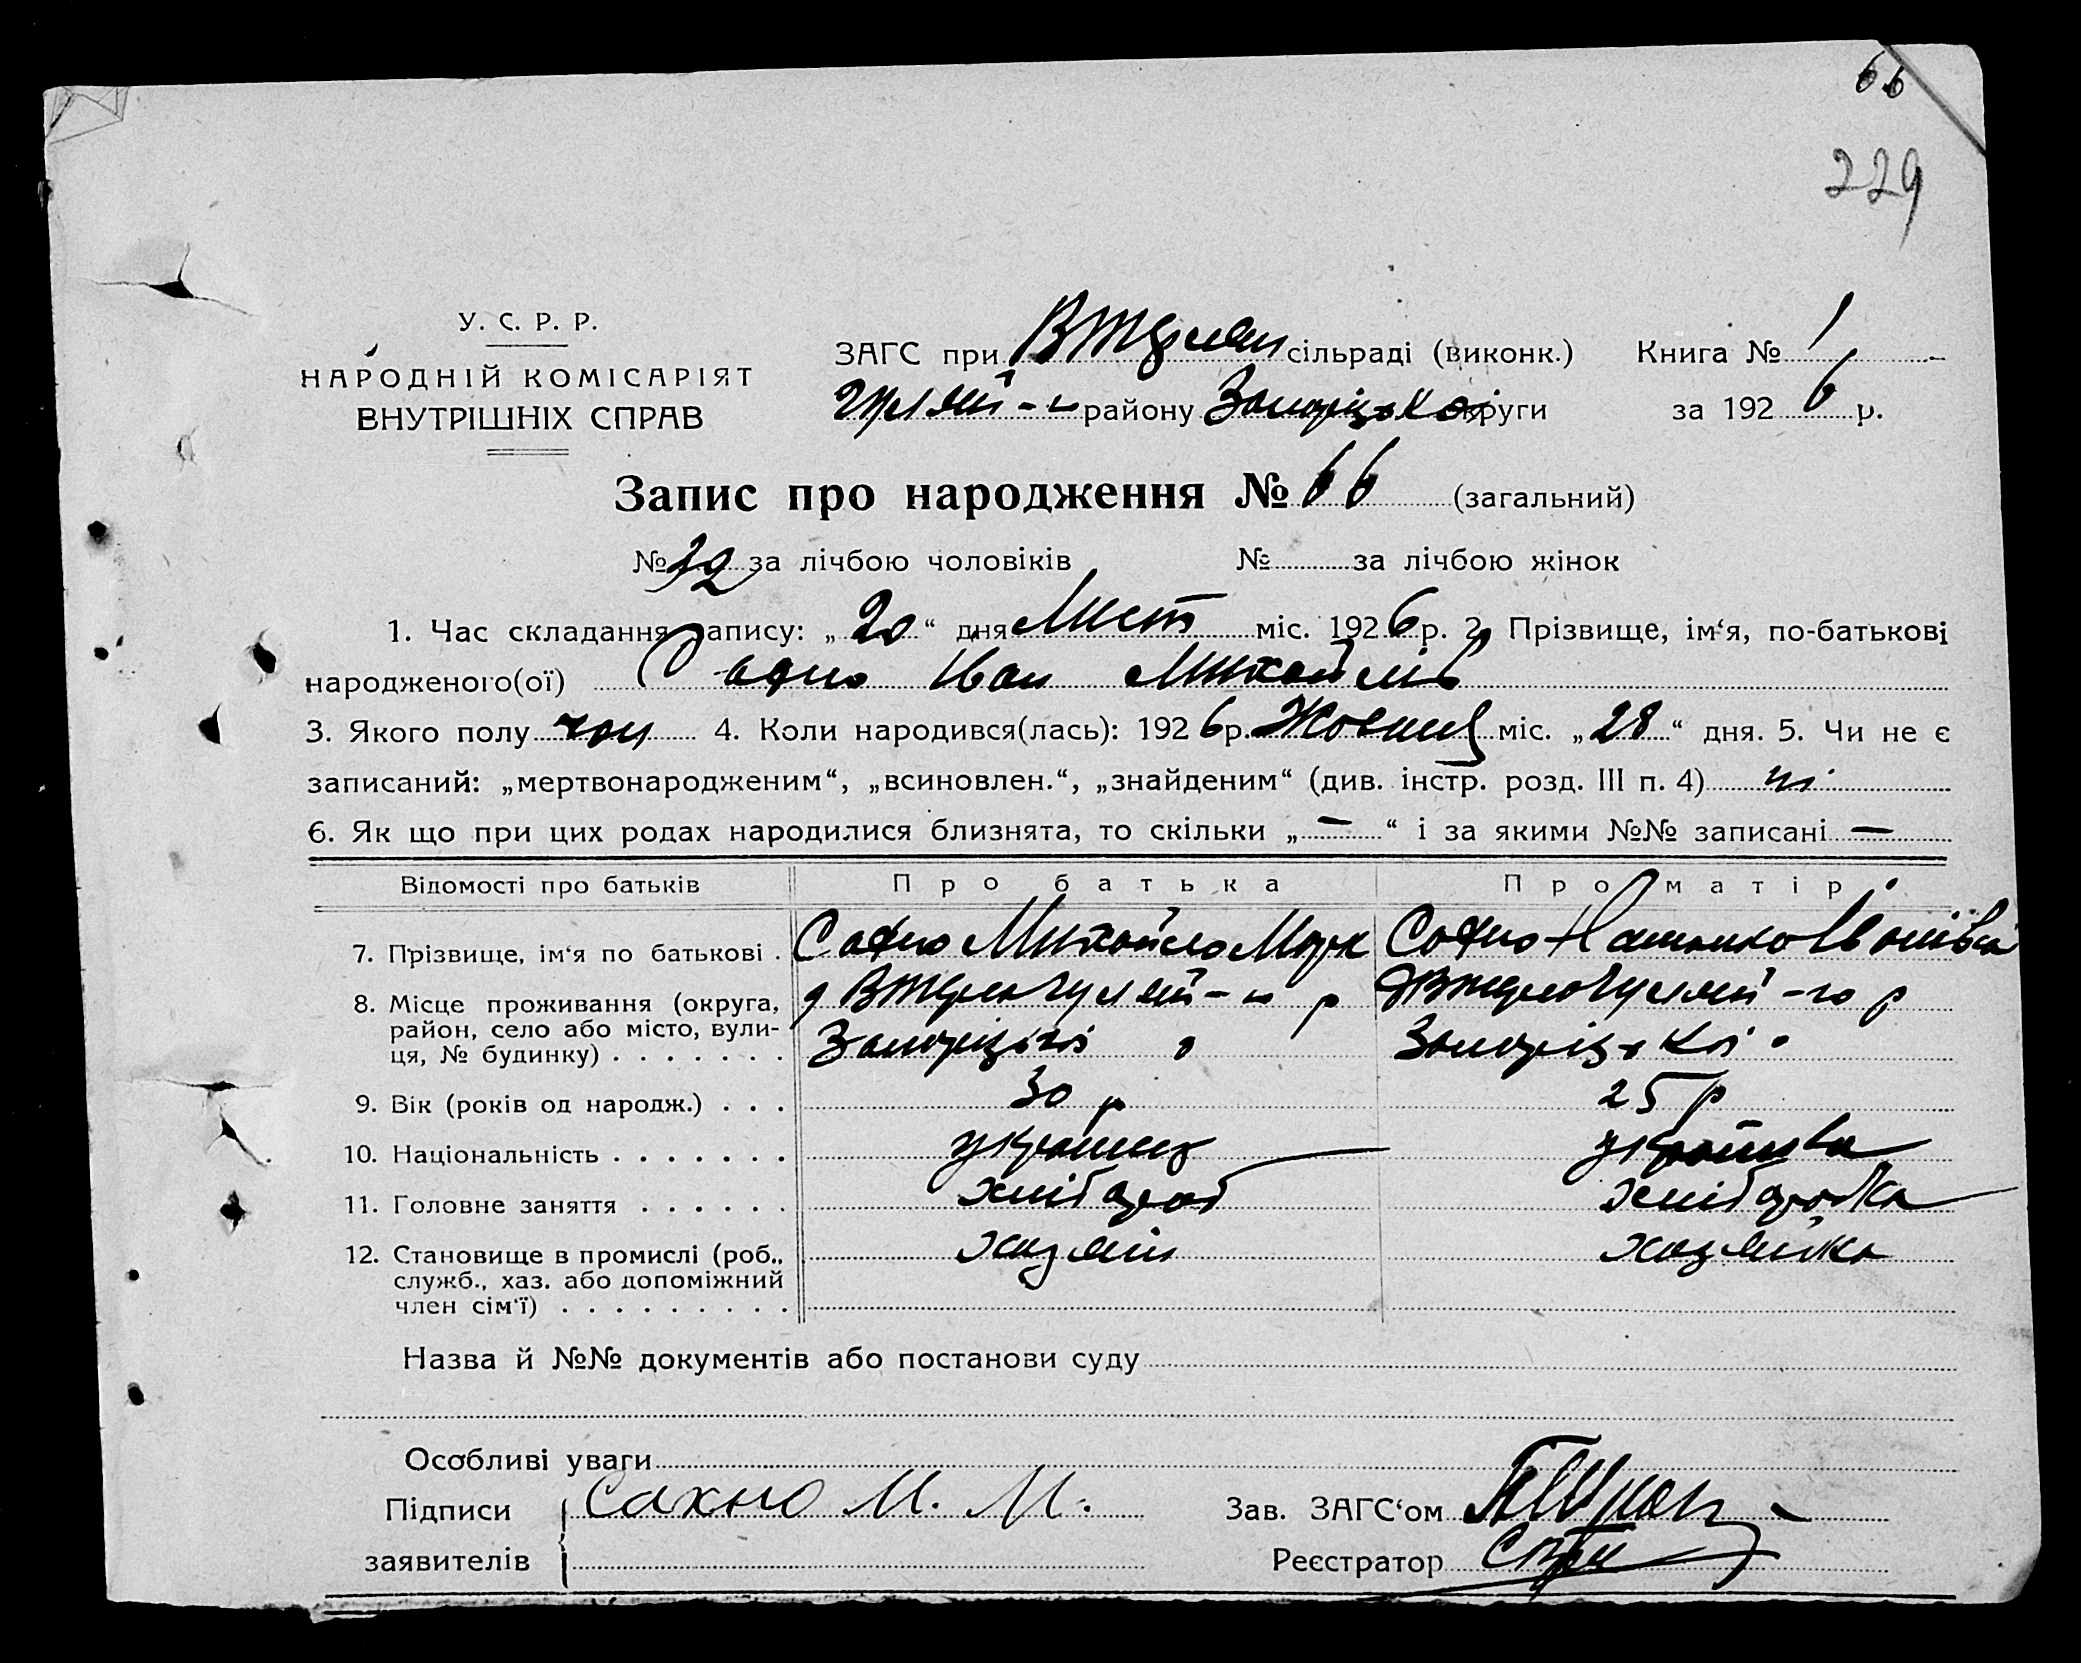 66
229
У. С. Р. Р.
НАРОДНІЙ КОМІСАРІЯТ
ВНУТРІШНІХ СПРАВ
ЗАГС при сільраді (виконк.) Книга № 1
району округи за 1926 р.
Запис про народження № 66 (загальний)
№ 32 за лічбою чоловіків № за лічбою жінок
1. Час складання запису: „20“ дня Лист міс. 1926 р. 2. Прізвище, ім‘я, по-батькові
народженого(ої) Іван Михайлів
3. Якого полу чол 4. Коли народився(лась): 1926 р. Жовтня міс. „28“ дня. 5. Чи не є
записаний: „мертвонародженим“, „всиновлен.“, „знайденим“ (див. інстр. розд. III п. 4) ні
6. Як що при цих родах народилися близнята, то скільки „—“ і за якими №№ записані —
Відомості про батьків Про батька Про матір
7. Прізвище, ім‘я по батькові . Михайло Іванівна
8. Місце проживання (округа,
район, село або місто, вули-
ця, № будинку) . . . . . . .
9. Вік (років од народж.) . . . 30 р 25 р
10. Національність . . . . . . . українец українка
11. Головне заняття . . . . . . хлібороб хліборобка
12. Становище в промислі (роб., хазяїн хазяйка
служб., хаз. або допоміжний
член сім‘ї) . . . . . . . . . .
Назва й №№ документів або постанови суду
Особливі уваги
Підписи Сахно М. М. Зав. ЗАГС‘ом
заявителів Реєстратор